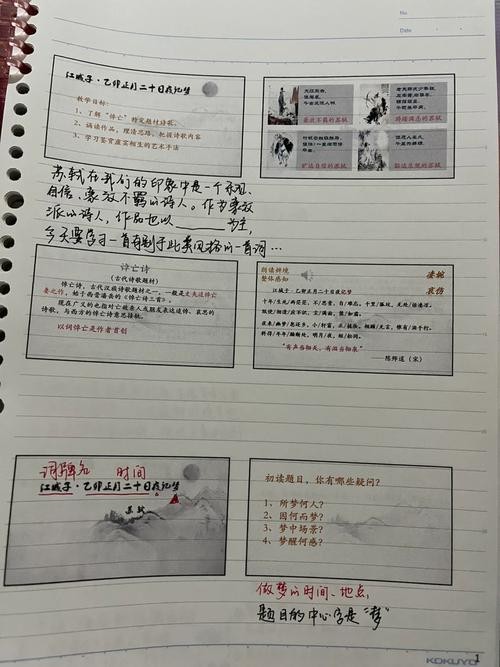 No.
Date
江城子·乙卯正月二十日夜记梦
教学目标:
1、了解“悼亡”特定题材诗歌。
2、诵读作品,理清思路,把握诗歌内容
3、学习鉴赏虚实相生的艺术手法
大江东去,
浪淘尽,
千古风流人物
豪放不羁的苏轼
老夫聊发少年狂,
左牵黄,右擎苍,
锦帽貂裘,
千骑卷平冈。
竹杖芒鞋轻胜马,
谁怕!一蓑烟雨任
平生
旷达自信的苏轼
苏轼在我们的印象中是一个乐观、
自信、豪放不羁的诗人。作为豪放
派的诗人,作品也以 为主,
今天要学习一首有别于此类风格的一首词…
悼亡诗
(古代诗歌题材)
悼亡诗,古代汉族诗歌题材之一,一般是丈夫追悼亡
妻之作,始于西晋潘岳的《悼亡诗三首》。
现在广义的也指对亡故亲人或朋友表达追悼、哀思的
诗歌,与西方的悼亡诗意思接轨。
以词悼亡是作者首创
朗读挑战
整体感知
凄婉
哀伤
江城子·乙卯正月二十日夜记梦
十年/生死/两茫茫,不/思量,自/难忘。千里/孤坟,无处/话凄凉。
纵使/相逢/应不识,尘/满面,鬓/如霜。
夜来/幽梦/忽还乡,小/轩窗,正/梳妆。相顾/无言,惟有/泪千行。
料得/年年/肠断处,明月/夜,短/松冈。
“有声当彻天,有泪当彻泉”
——陈师道(宋)
词牌名 时间
江城子·乙卯正月二十日夜记梦
苏轼
初读题目,你有哪些疑问?
1、所梦何人?
2、因何而梦?
3、梦中场景?
4、梦醒何感?
做梦的时间、地点,
题目的中心字是“梦”
KOKUYO
1